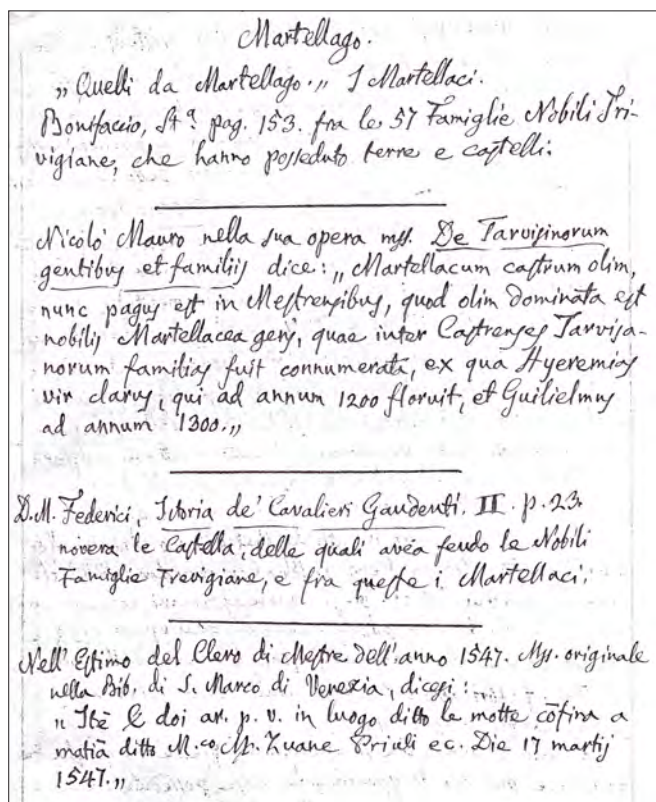 Martellago.
„ Quelli da Martellago. „ I Martellaci.
Bonifaccio, St.ª pag. 153. fra le 57 Famiglie Nobili Tri-
vigiane, che hanno posseduto terre e castelli.
Nicolò Mauro nella sua opera mss. De Tarvisinorum
gentibus et familiis dice: „ Martellacum castrum olim,
nunc pagus est in Mestrensibus, quod olim dominata est
nobilis Martellacea gens, quae inter Castrenses Tarvisa-
norum familias fuit connumerata, ex qua Hyeremias
vir clarus, qui ad annum 1200 floruit, et Guilielmus
ad annum 1300. „
D.M. Federici, Istoria de' Cavalieri Gaudenti. II. p. 23.
novera le Castella, delle quali avéa feudo le Nobili
Famiglie Trevigiane, e fra queste i Martellaci.
Nell' Estimo del Clero di Mestre dell' anno 1547. Mss. originale
nella Bib. di S. Marco di Venezia, dicesi:
„ Itē doi ar. p. v. in luogo ditto le motte cōfina a
matiā ditto M.co M. Zuane Priuli ec. Die 17 martij
1547. „